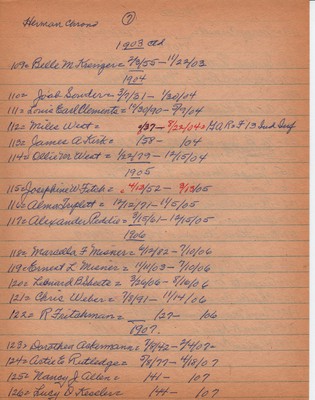 Herman Chrono ⑦
1903 ctd
109= Belle M Krenger= 7/9/55 – 11/22/03
1904
110= Josh Souders= 3/7/31 – 1/30/04
111= Louis Earl Clements= 11/30/90 – 5/9/04
112= Miles West= /27 – 9/22/04= GAR= F 13 Ind Inf
113= James A Kirk= /58 – /04
114= Ollie M. West= 1/22/79 – 12/15/04
1905
115= Josephine W. Fitch= 4/12/52 – 9/13/05
116= Alma Triplett= 12/12/71 – 11/5/05
117= Alexander Peddie= 9/15/61 – 12/15/05
1906
118= Marcella F Misner= 6/12/02 – 7/10/06
119= Ernest L Misner= 11/11/03 – 7/10/06
120= Leonard B Shote= 3/26/06 – 8/16/06
121= Chris Weber= 7/8/91 – 11/14/06
122= R Fritchman= /27 – /06
1907.
123= Dorothea Askermann= 7/8/42 – 2/4/07=
124= Artie E Rutledge= 7/8/77 – 4/18/07
125= Nancy J Allen= /44 – /07
126= Lucy D. Kesler= /44 – /07